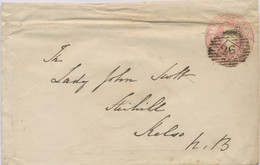 The
Lady John Scott
Stichill
Kelso
N.B
26